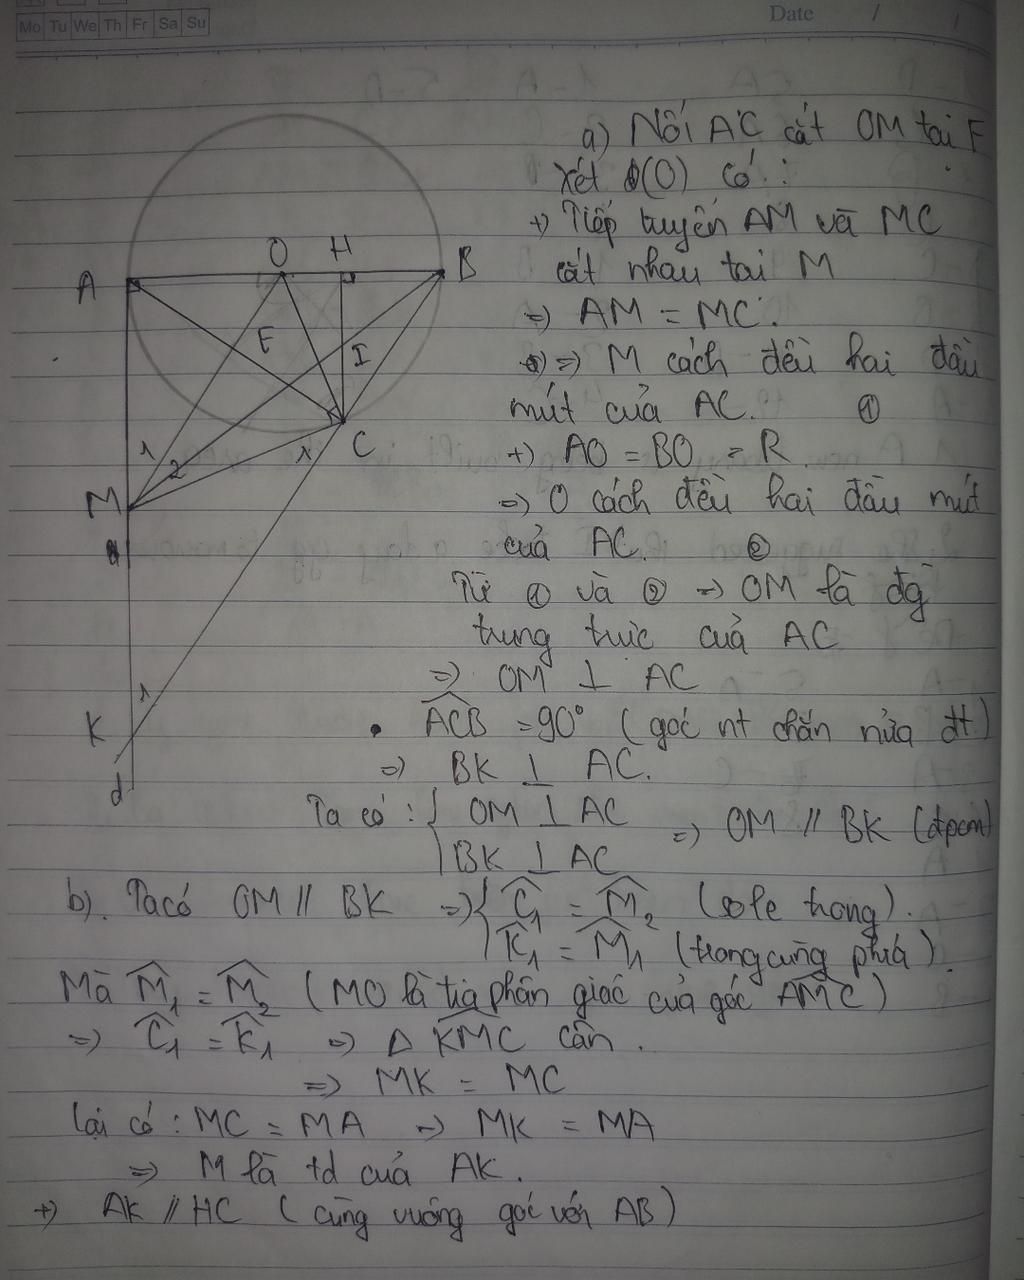 Mo Tu We Th Fr Sa Su
Date / /
a) Nối AC cắt OM tại F
xét (O) có :
+) Tiếp tuyến AM và MC
cắt nhau tại M
=> AM = MC.
=> M cách đều hai đầu
mút của AC. ①
+) AO = BO = R
=> O cách đều hai đầu mút
của AC. ②
Từ ① và ② => OM là đg
trung trực của AC
=> OM ⊥ AC
• ACB = 90° (góc nt chắn nửa đt)
=> BK ⊥ AC.
Ta có : { OM ⊥ AC
BK ⊥ AC => OM // BK (đpcm)
A O H B
E I
1 2 C
M 1
1
K
d
b). Ta có OM // BK => { C1 = M2 (sole trong).
K1 = M1 (trong cùng phía).
Mà M1 = M2 (MO là tia phân giác của góc AMC)
=> C1 = K1 => Δ KMC cân.
=> MK = MC
lại có : MC = MA => MK = MA
=> M là td của AK.
+) AK // HC (cùng vuông góc với AB)